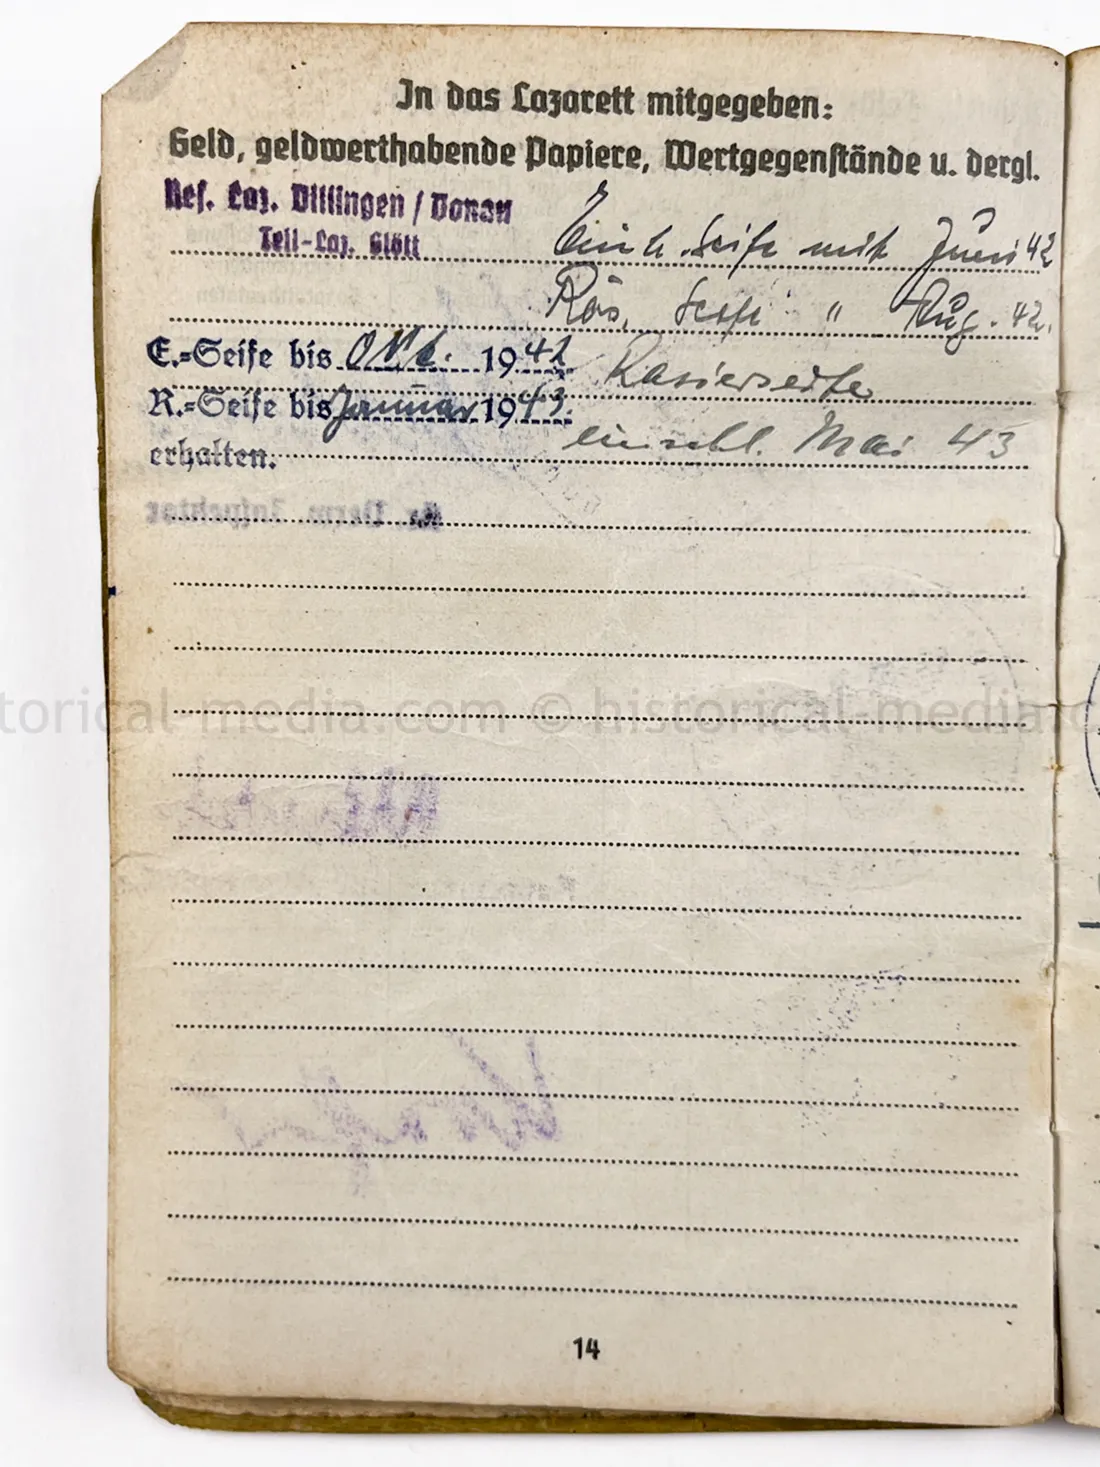 In das Lazarett mitgegeben:
Geld, geldwerthabende Papiere, Wertgegenstände u. dergl.
Res. Laz. Dillingen / Donau
Teil-Laz. Glött
Einh. Seife mit Juni 42
Ras. Seife " Aug. 42.
E.=Seife bis Okt. 1942
R.=Seife bis Januar 1943.
erhalten.
Rasierseife
einschl. Mai 43
historical-media.com © historical-media.c
14